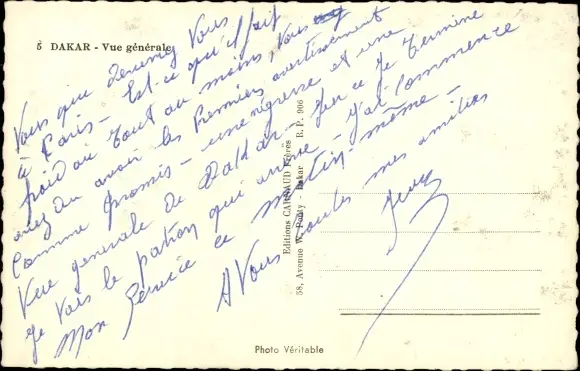 5 DAKAR - Vue générale
Vous que devenez Vous
à Paris - Est-ce qu'il fait
froid ou tout au moins, Vous
avez du avoir les Premiers avertissement
Comme promis - une négresse et une
Vue generale de Dakar - Sur ce je termine
je Vois le patron qui arrive - j'ai commencé
Mon Service ce matin-même -
A Vous toutes mes amitiés
Editions CARNAUD Frères
58, Avenue W. Ponty - Dakar R. P. 906
Photo Véritable